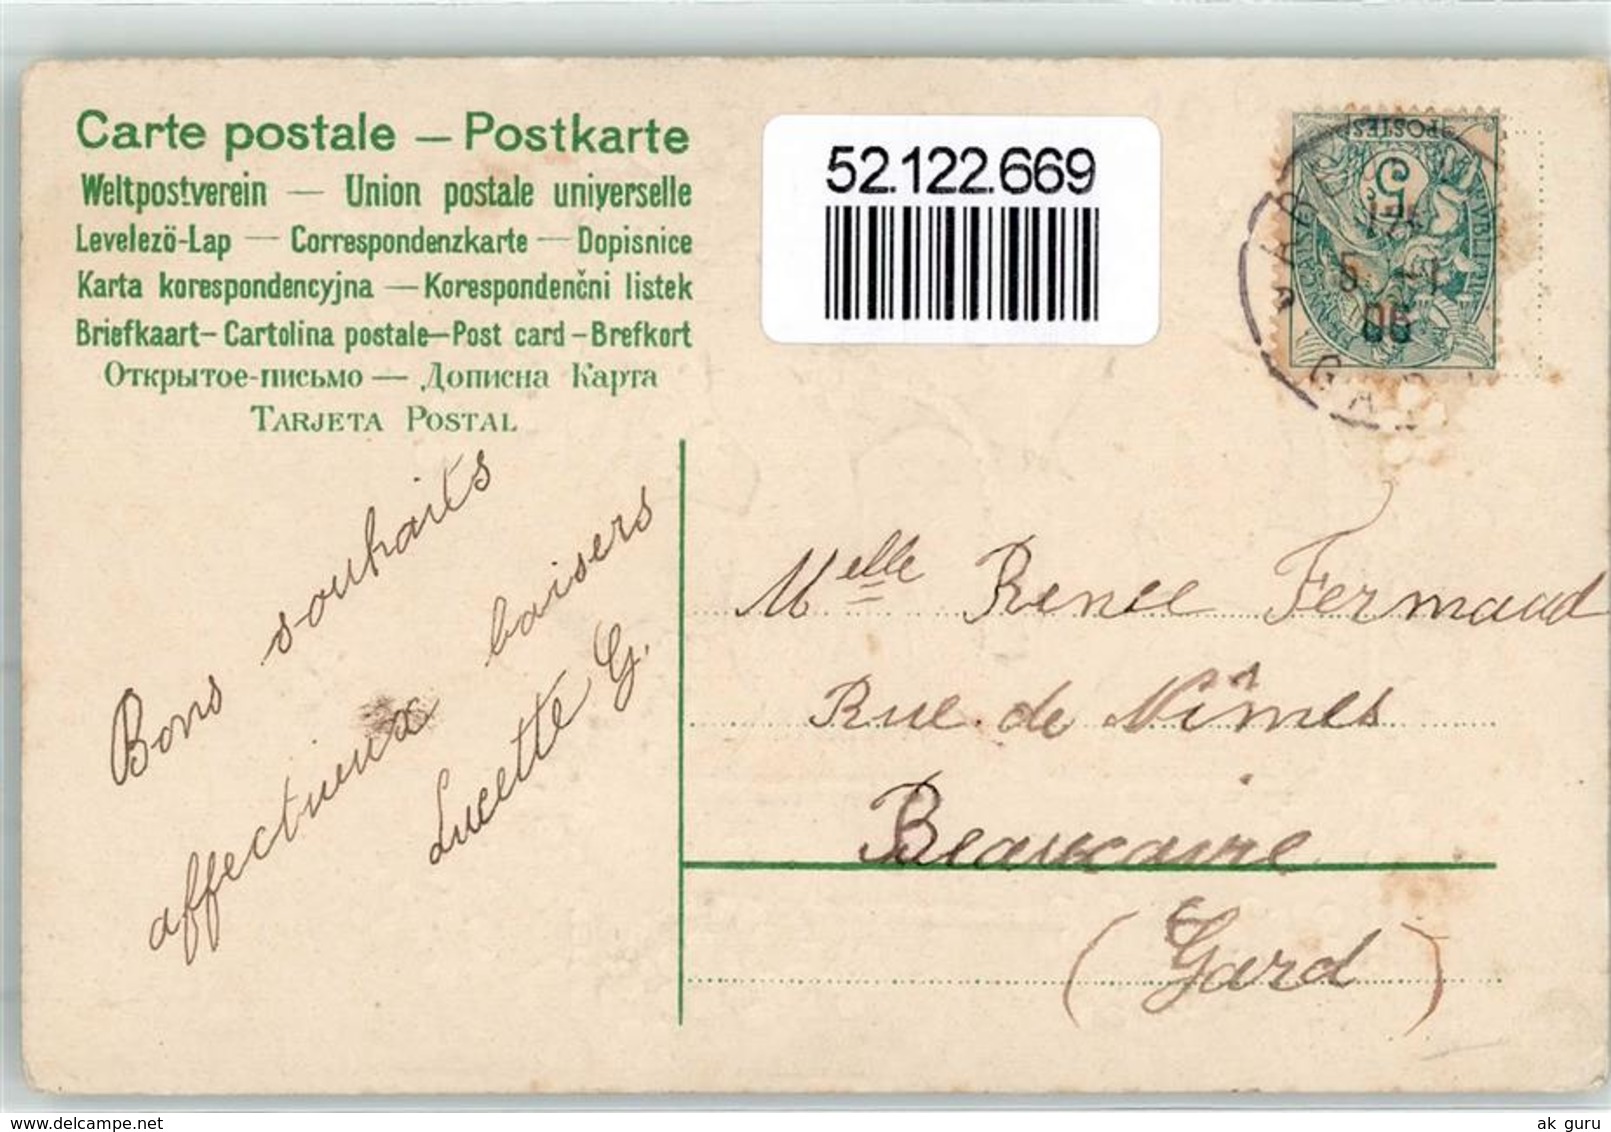 Carte postale — Postkarte
Weltpostverein — Union postale universelle
Levelező-Lap — Correspondenzkarte — Dopisnice
Karta korespondencyjna — Korespondenčni listek
Briefkaart — Cartolina postale — Post card — Brefkort
Открытое-письмо — Дописна Карта
TARJETA POSTAL
52.122.669
POSTES
5
5 -1
06
GARD
Bons souhaits
affectueux baisers
Lucette G.
Melle Renee Fermaud
Rue de Nîmes
Beaucaire
(Gard)
ak guru
www.delcampe.net